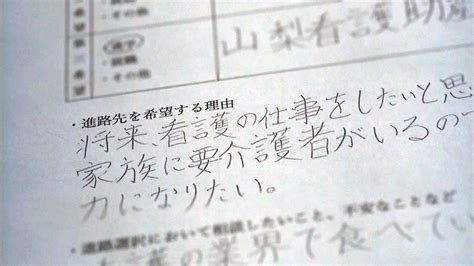 希望
・その他
第三希望
進学
・就職
・その他
山梨看護助産
・進路先を希望する理由
将来、看護の仕事をしたいと思
家族に要介護者がいるので
力になりたい。
・進路選択において相談したいこと、不安なことなど
護の業界で食べてい